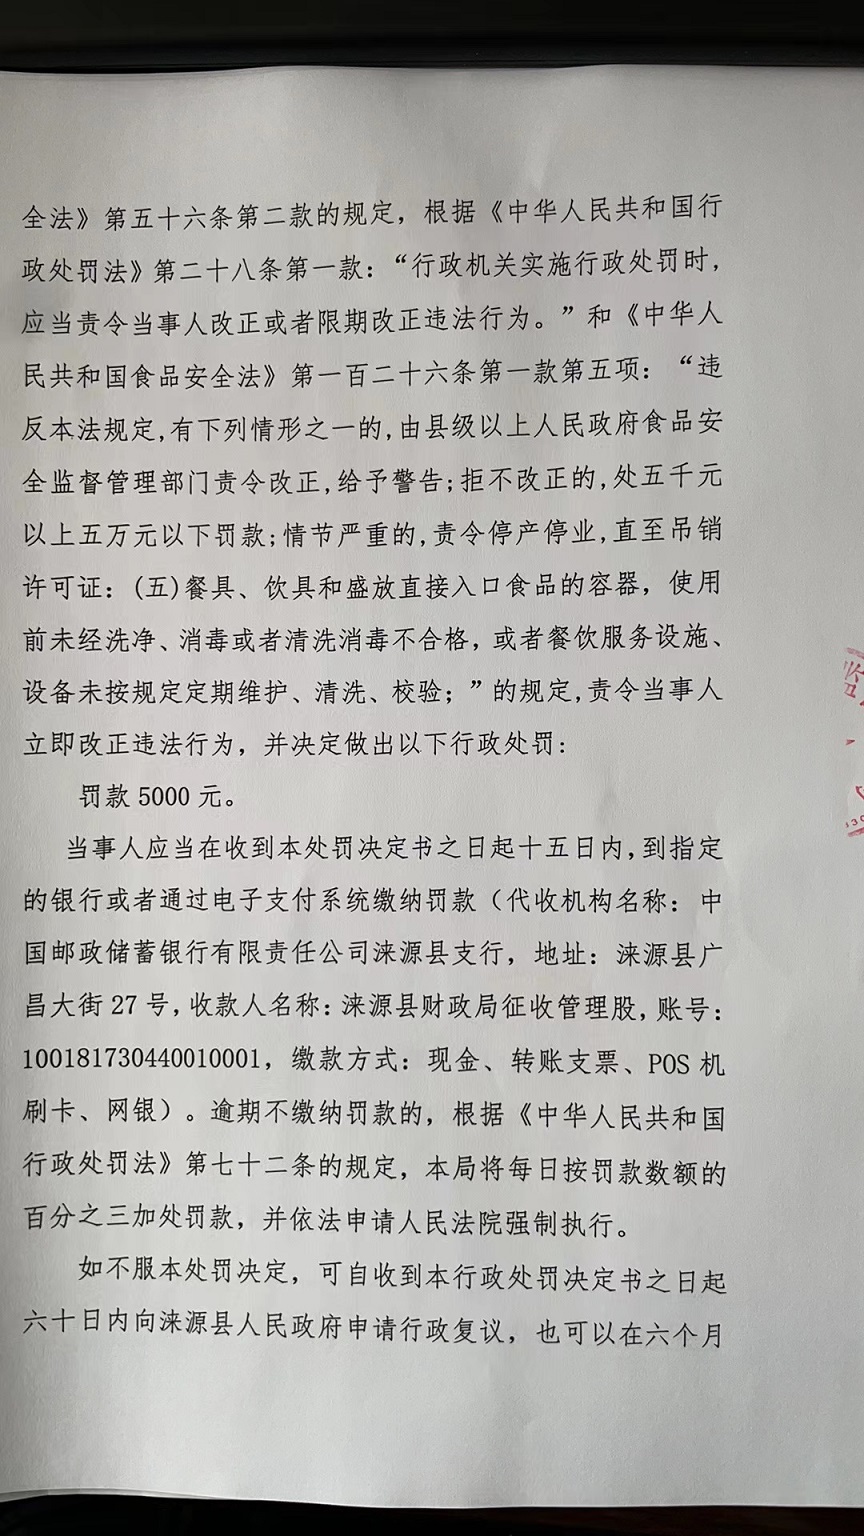 全法》第五十六条第二款的规定，根据《中华人民共和国行
政处罚法》第二十八条第一款：“行政机关实施行政处罚时，
应当责令当事人改正或者限期改正违法行为。”和《中华人
民共和国食品安全法》第一百二十六条第一款第五项：“违
反本法规定,有下列情形之一的,由县级以上人民政府食品安
全监督管理部门责令改正,给予警告;拒不改正的,处五千元
以上五万元以下罚款;情节严重的,责令停产停业,直至吊销
许可证：(五)餐具、饮具和盛放直接入口食品的容器，使用
前未经洗净、消毒或者清洗消毒不合格，或者餐饮服务设施、
设备未按规定定期维护、清洗、校验；”的规定,责令当事人
立即改正违法行为，并决定做出以下行政处罚：
罚款 5000 元。
当事人应当在收到本处罚决定书之日起十五日内,到指定
的银行或者通过电子支付系统缴纳罚款（代收机构名称：中
国邮政储蓄银行有限责任公司涞源县支行，地址：涞源县广
昌大街 27 号,收款人名称：涞源县财政局征收管理股,账号：
100181730440010001，缴款方式：现金、转账支票、POS 机
刷卡、网银）。逾期不缴纳罚款的，根据《中华人民共和国
行政处罚法》第七十二条的规定，本局将每日按罚款数额的
百分之三加处罚款，并依法申请人民法院强制执行。
如不服本处罚决定，可自收到本行政处罚决定书之日起
六十日内向涞源县人民政府申请行政复议，也可以在六个月